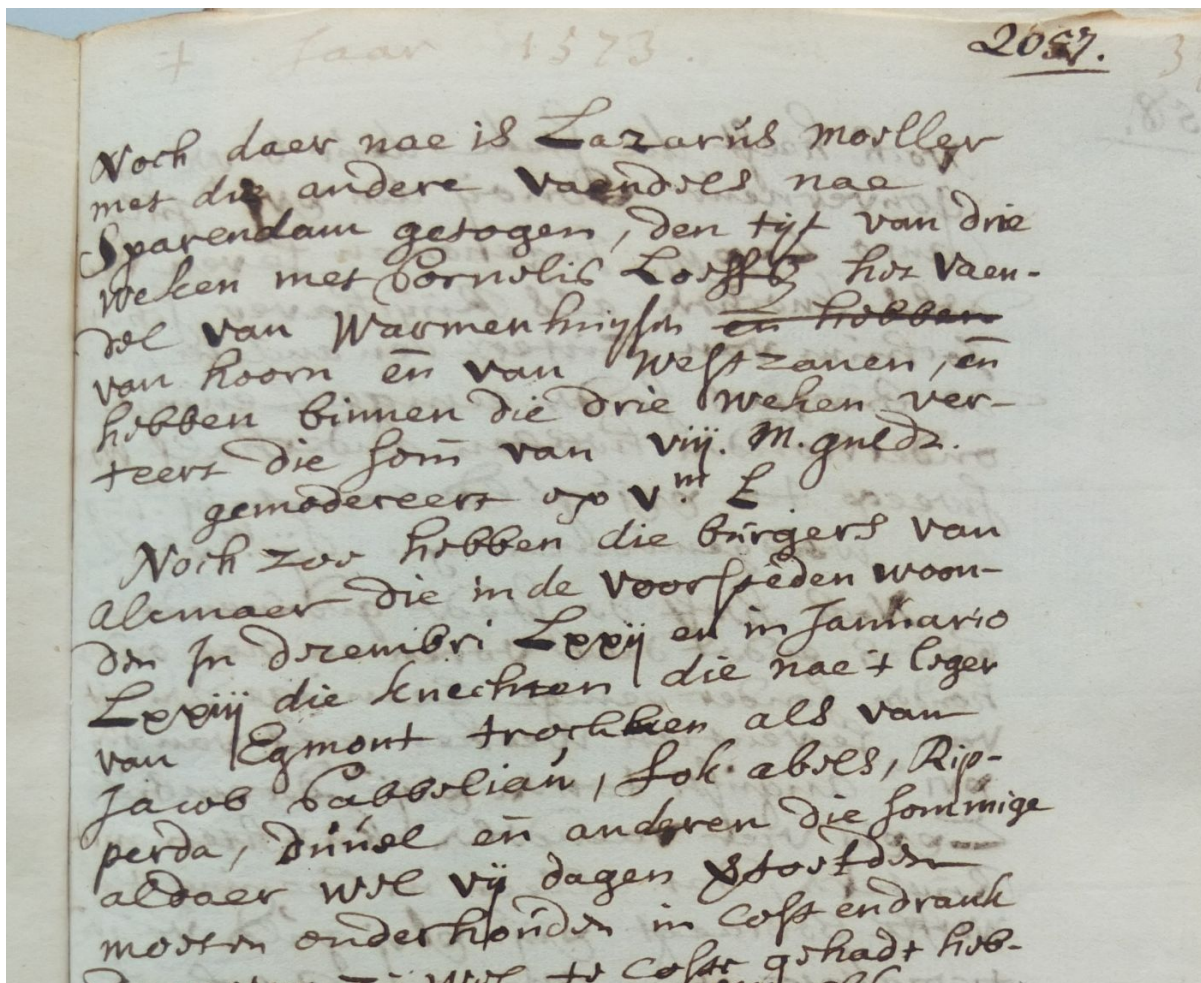 + Jaar 1573.
2057.
Noch daer nae is Lazarus moeller
met die andere vaendels nae
Sparendam getogen, den tijt van drie
weken met Cornelis Loeffz het vaen-
del van Warmenhuijsen en hebben
van hoorn en van Westzanen, en
hebben binnen die drie weken ver-
teert die som van viij. M. guldz.
gemodereert op vm L
Noch zoo hebben die burgers van
alcmaer die in de voorsteden woon-
den In dezembri Lxxij en in Januario
Lxxiij die knechten die nae t leger
van Egmont trochken als van
Jacob Cabbeliau, fok. abels, Rip-
perda, Duuel en anderen die sommige
aldaer wel vij dagen
moeten onderhouden in cost en drank
wel te coste gehadt heb-